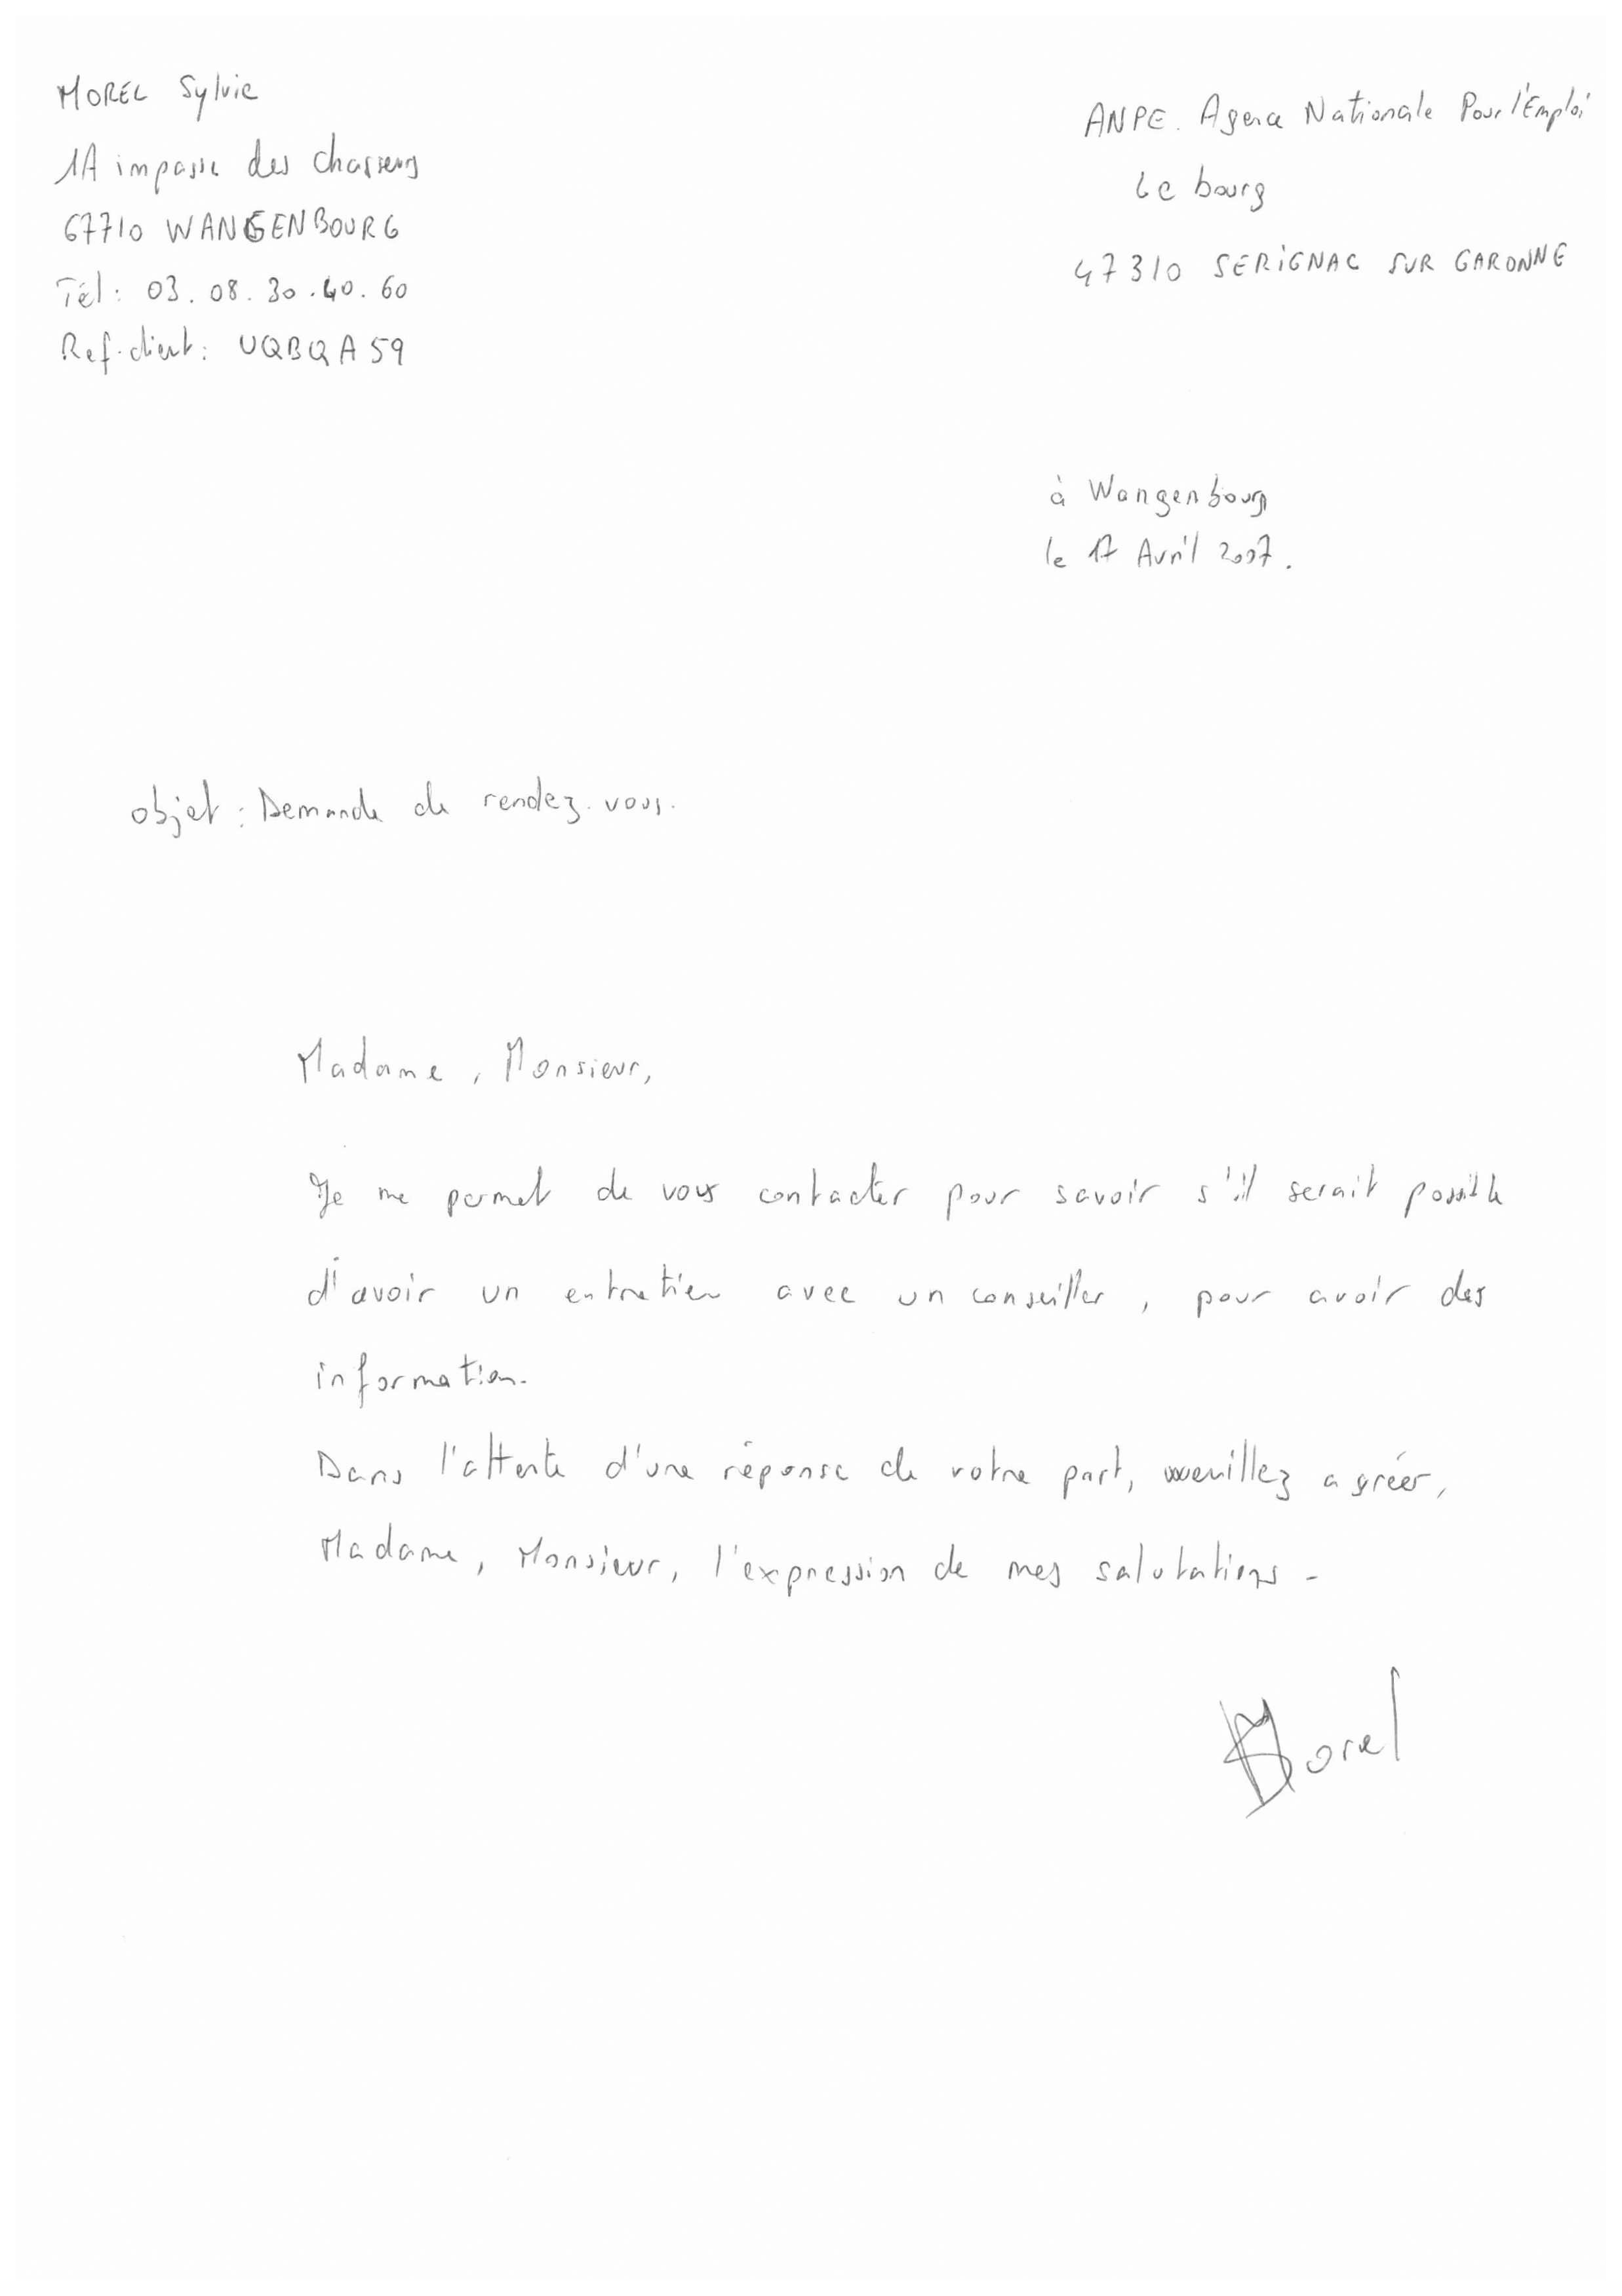 MOREL Sylvie
1A impasse des chasseurs
67710 WANGENBOURG
Tél : 03.08.30.40.60
Ref.client : UQBQA59
ANPE. Agence Nationale Pour l'Emploi
Le bourg
47310 SERIGNAC SUR GARONNE
à Wangenbourg
le 17 Avril 2007.
objet : Demande de rendez-vous.
Madame, Monsieur,
Je me permet de vous contacter pour savoir s'il serait possible
d'avoir un entretien avec un conseiller, pour avoir des
information.
Dans l'attente d'une réponse de votre part, veuillez agréer,
Madame, Monsieur, l'expression de mes salutations.
Morel